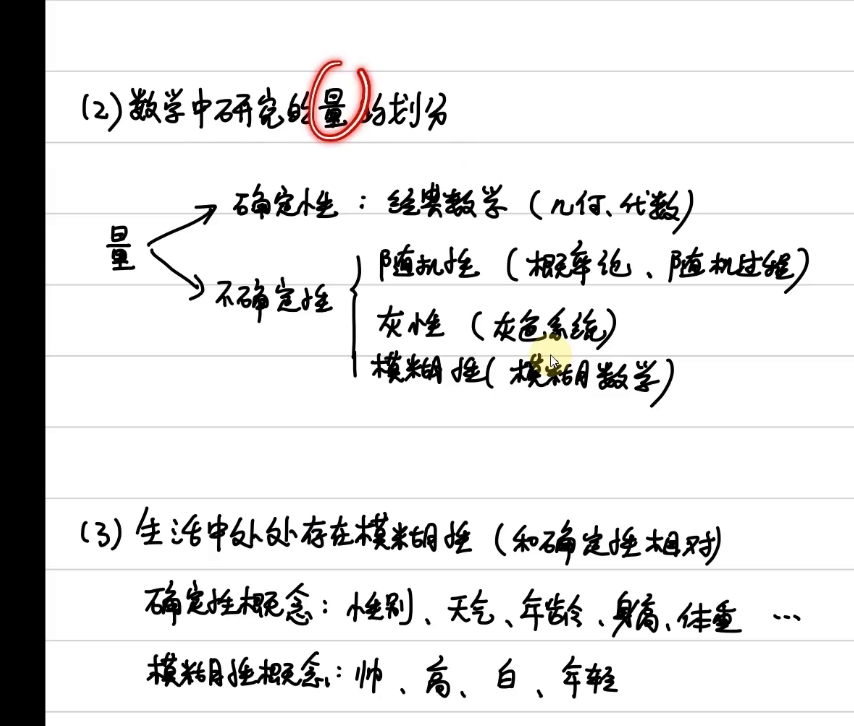 (2)数学中研究的量的划分
量
确定性：经典数学（几何、代数）
不确定性
随机性（概率论、随机过程）
灰性（灰色系统）
模糊性（模糊数学）
(3)生活中处处存在模糊性（和确定性相对）
确定性概念：性别、天气、年龄、身高、体重 …
模糊性概念：帅、高、白、年轻